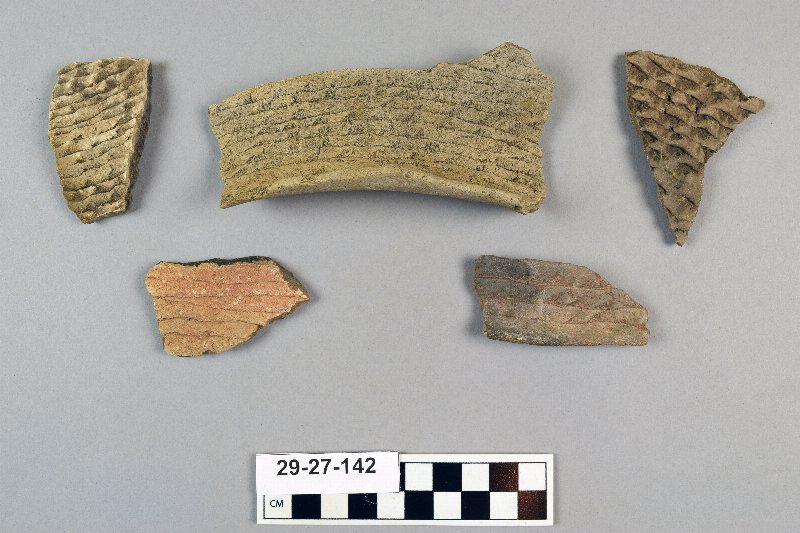 29-27-142
CM